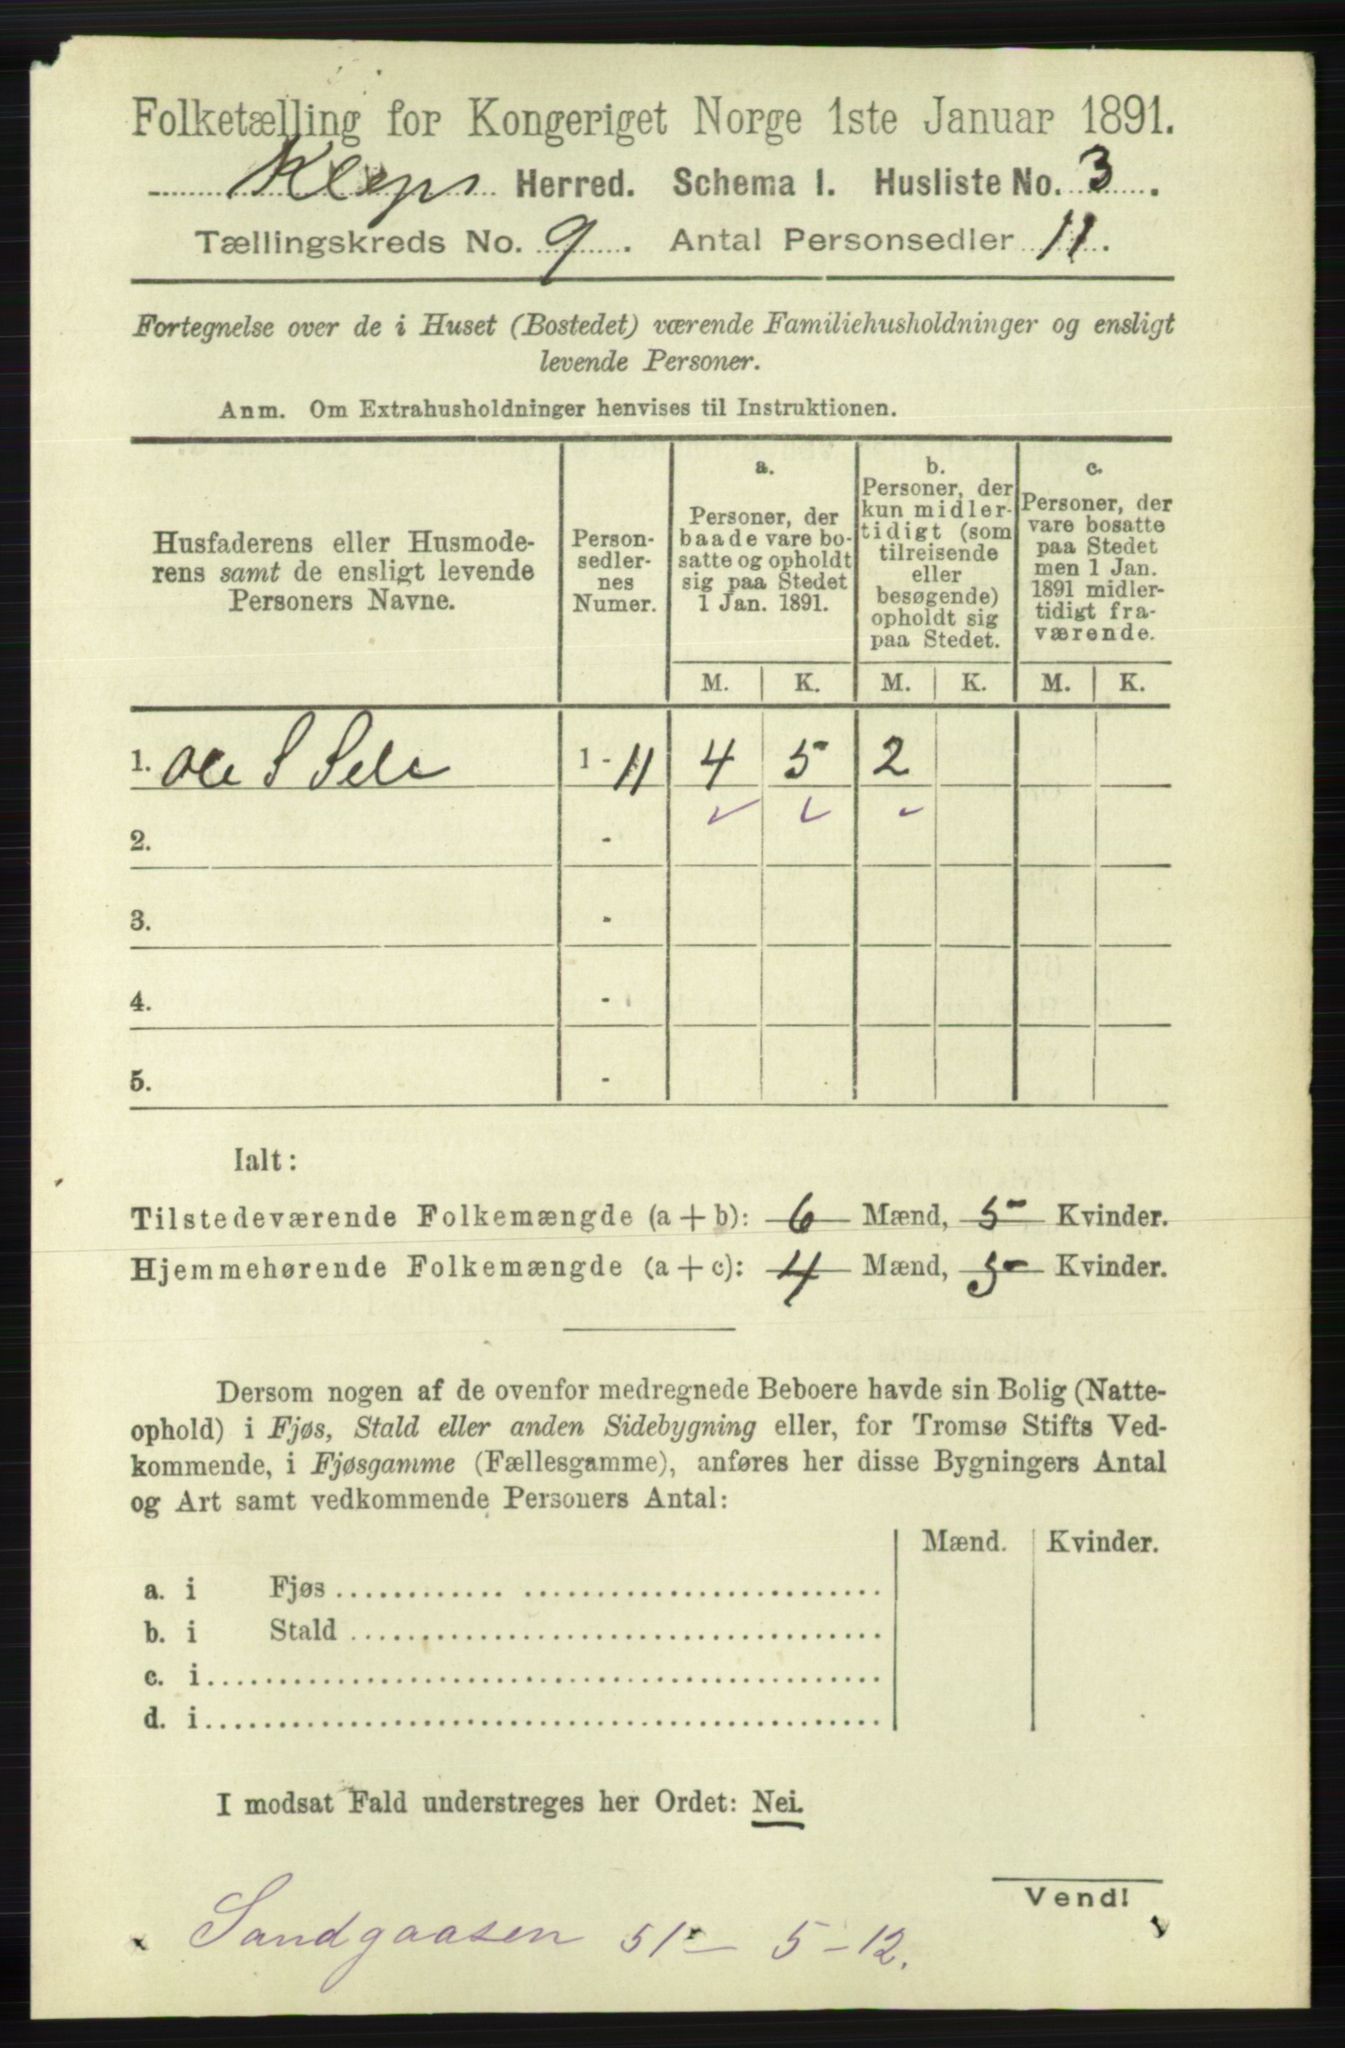 Folketælling for Kongeriget Norge 1ste Januar 1891.
Klepp Herred. Schema I. Husliste No. 3.
Tællingskreds No. 9. Antal Personsedler 11.
Fortegnelse over de i Huset (Bostedet) værende Familiehusholdninger og ensligt
levende Personer.
Anm. Om Extrahusholdninger henvises til Instruktionen.
Husfaderens eller Husmode-
rens samt de ensligt levende
Personers Navne.
Person-
sedler-
nes
Numer.
a.
Personer, der
baade vare bo-
satte og opholdt
sig paa Stedet
1 Jan. 1891.
b.
Personer, der
kun midler-
tidigt (som
tilreisende
eller
besøgende)
opholdt sig
paa Stedet.
c.
Personer, der
vare bosatte
paa Stedet
men 1 Jan.
1891 midler-
tidigt fra-
værende.
M. K. M. K. M. K.
1. Ole S Sele 1 - 11 4 5 2
2. -
3. -
4. -
5. -
Ialt:
Tilstedeværende Folkemængde (a + b): 6 Mænd, 5 Kvinder.
Hjemmehørende Folkemængde (a + c): 4 Mænd, 5 Kvinder.
Dersom nogen af de ovenfor medregnede Beboere havde sin Bolig (Natte-
ophold) i Fjøs, Stald eller anden Sidebygning eller, for Tromsø Stifts Ved-
kommende, i Fjøsgamme (Fællesgamme), anføres her disse Bygningers Antal
og Art samt vedkommende Personers Antal:
Mænd. Kvinder.
a. i Fjøs
b. i Stald
c. i
d. i
I modsat Fald understreges her Ordet: Nei.
Vend!
Sandgaasen 51 - 5-12.